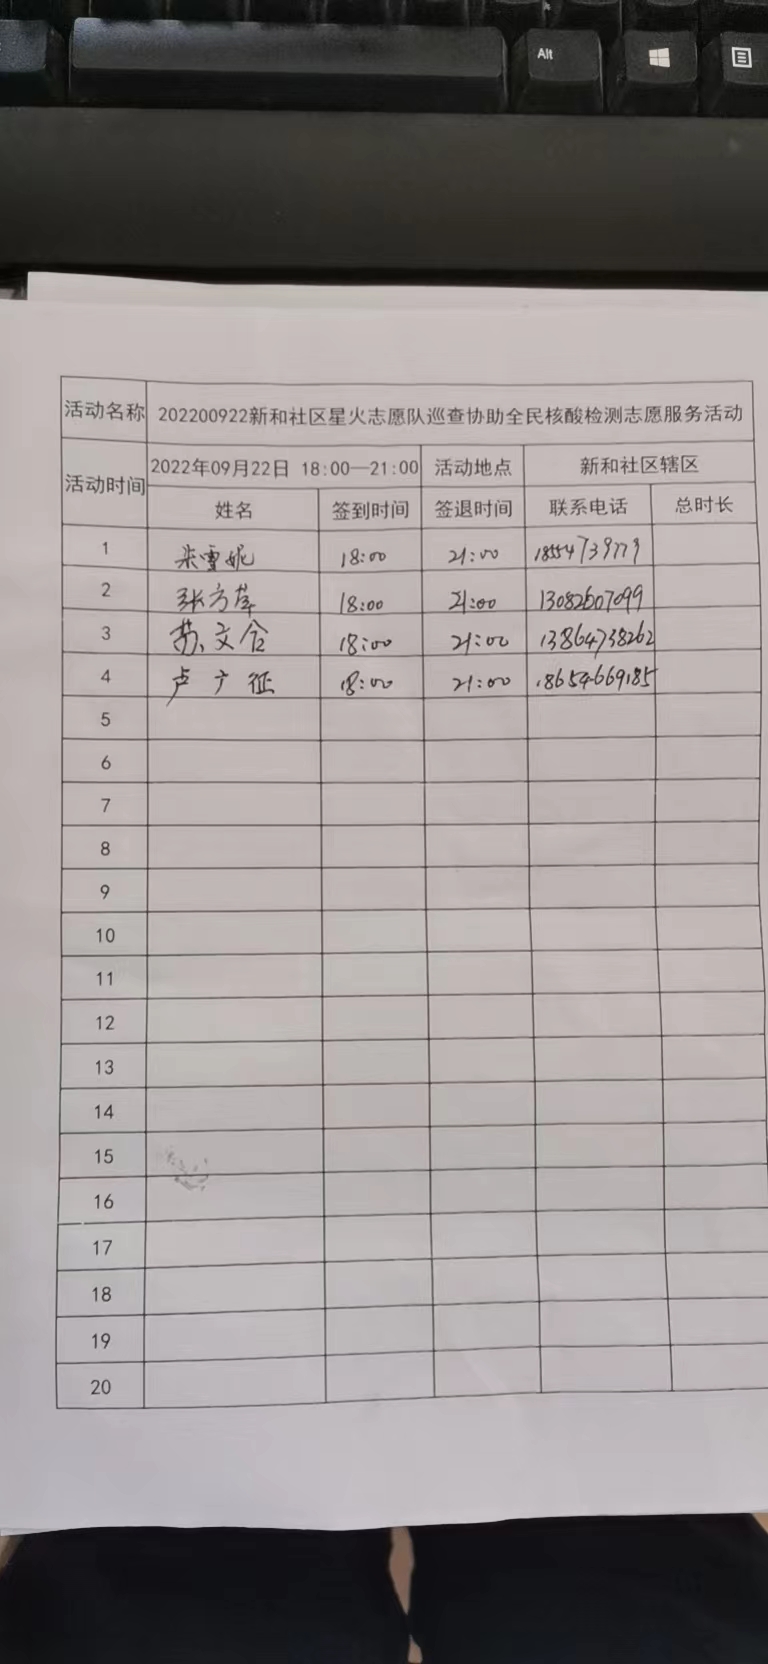 Alt
活动名称 202200922新和社区星火志愿队巡查协助全民核酸检测志愿服务活动
活动时间 2022年09月22日 18:00—21:00 活动地点 新和社区辖区
姓名 签到时间 签退时间 联系电话 总时长
1 朱雪妮 18:00 21:00 18554739779
2 张方萍 18:00 21:00 13082607099
3 苏文合 18:00 21:00 13864738262
4 卢广征 18:00 21:00 18654669185
5
6
7
8
9
10
11
12
13
14
15
16
17
18
19
20